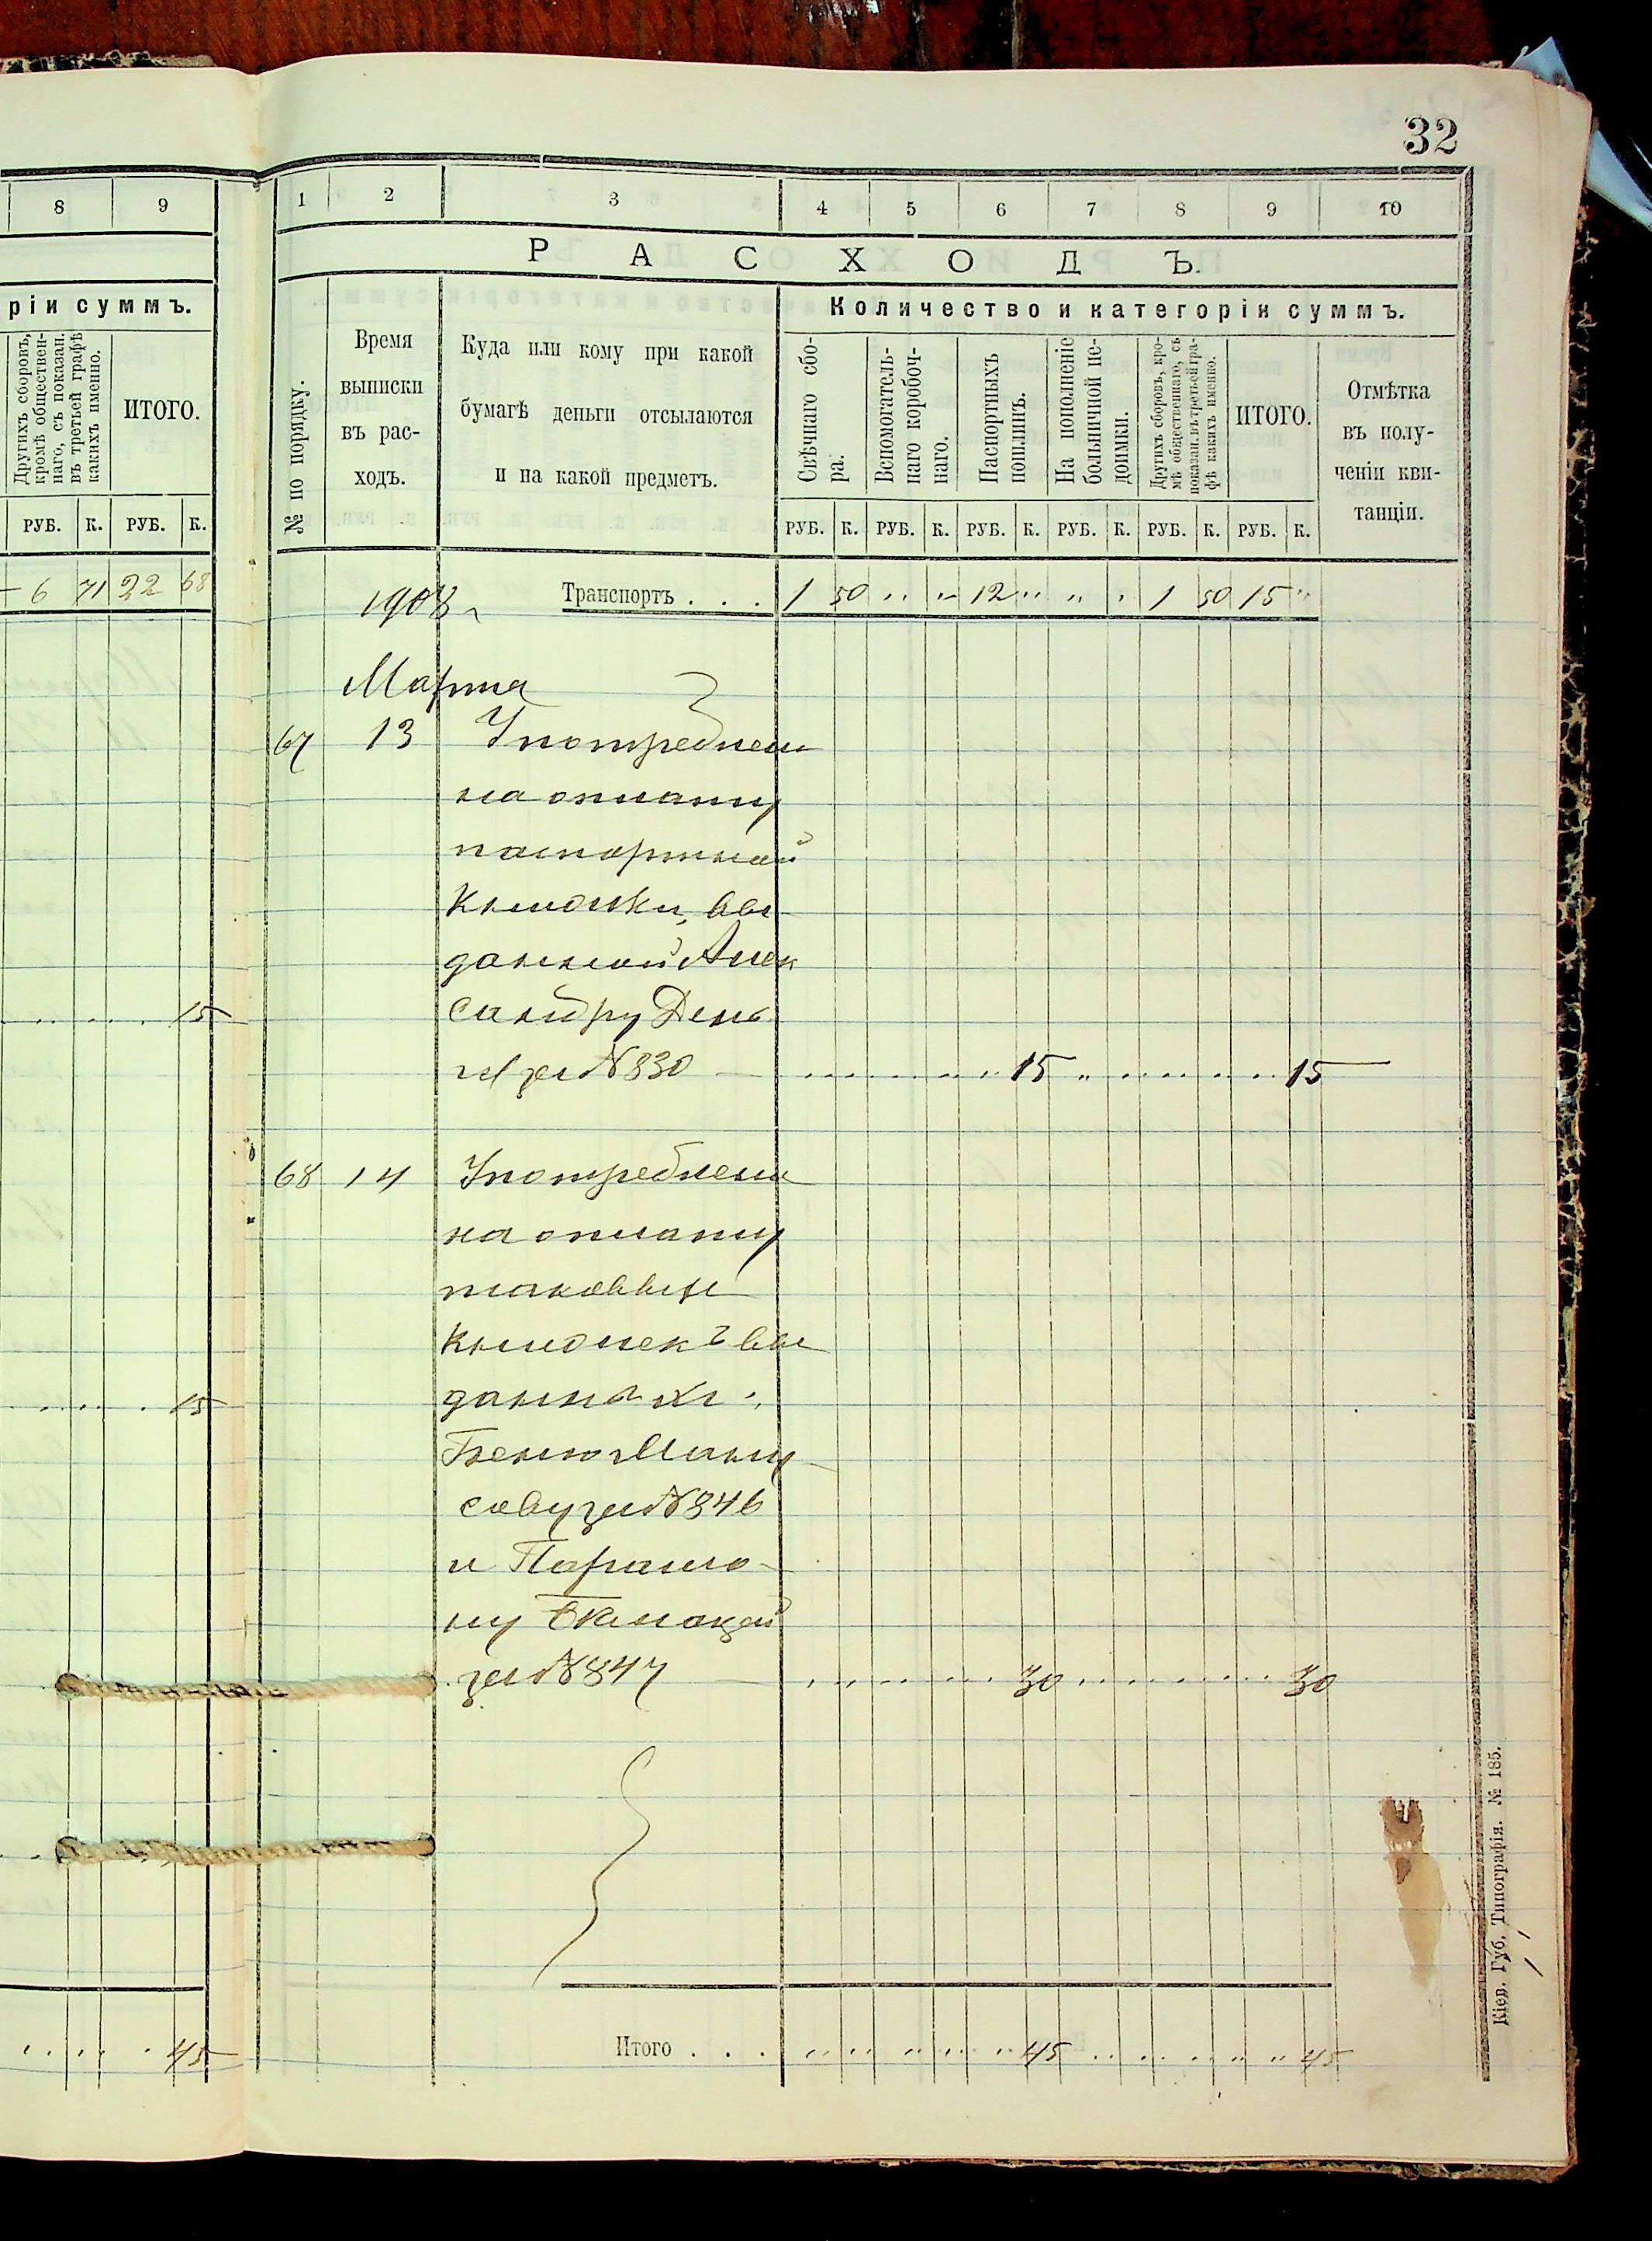 32
8 9
ріи суммъ.
Другихъ сборовъ,
кромѣ обществен-
наго, съ показан.
въ третьей графѣ
какихъ именно.
ИТОГО.
РУБ. К. РУБ. К.
6 71 22 68
15
15
45
1 2 3 4 5 6 7 8 9 10
РАСХОДЪ.
№ по порядку.
Время
выписки
въ рас-
ходъ.
Куда или кому при какой
бумагѣ деньги отсылаются
и на какой предметъ.
Количество и категоріи суммъ.
Свѣчнаго сбо-
ра.
Вспомогатель-
наго коробоч-
наго.
Паспортныхъ
пошлинъ.
На пополненіе
больничной не-
доимки.
Другихъ сборовъ, кро-
мѣ общественнаго, съ
показан. въ третьей гра-
фѣ какихъ именно.
ИТОГО.
Отмѣтка
въ полу-
ченіи кви-
танціи.
РУБ. К. РУБ. К. РУБ. К. РУБ. К. РУБ. К. РУБ. К.
1908 Транспортъ . . . 1 50 " " 12 " " " 1 50 15 "
Марта
67 13 Употреблен
на оплату
паспортной
книжки, вы-
данной Алек
сандру
№ 830 15 15
68 14 Употреблены
на оплату
таковыхъ
книжекъ вы
данныхъ:
Ману-
сову за № 846
и
ну
за № 847 30 30
Итого . . . 45 45
Кіев. Губ. Типографія. № 185.